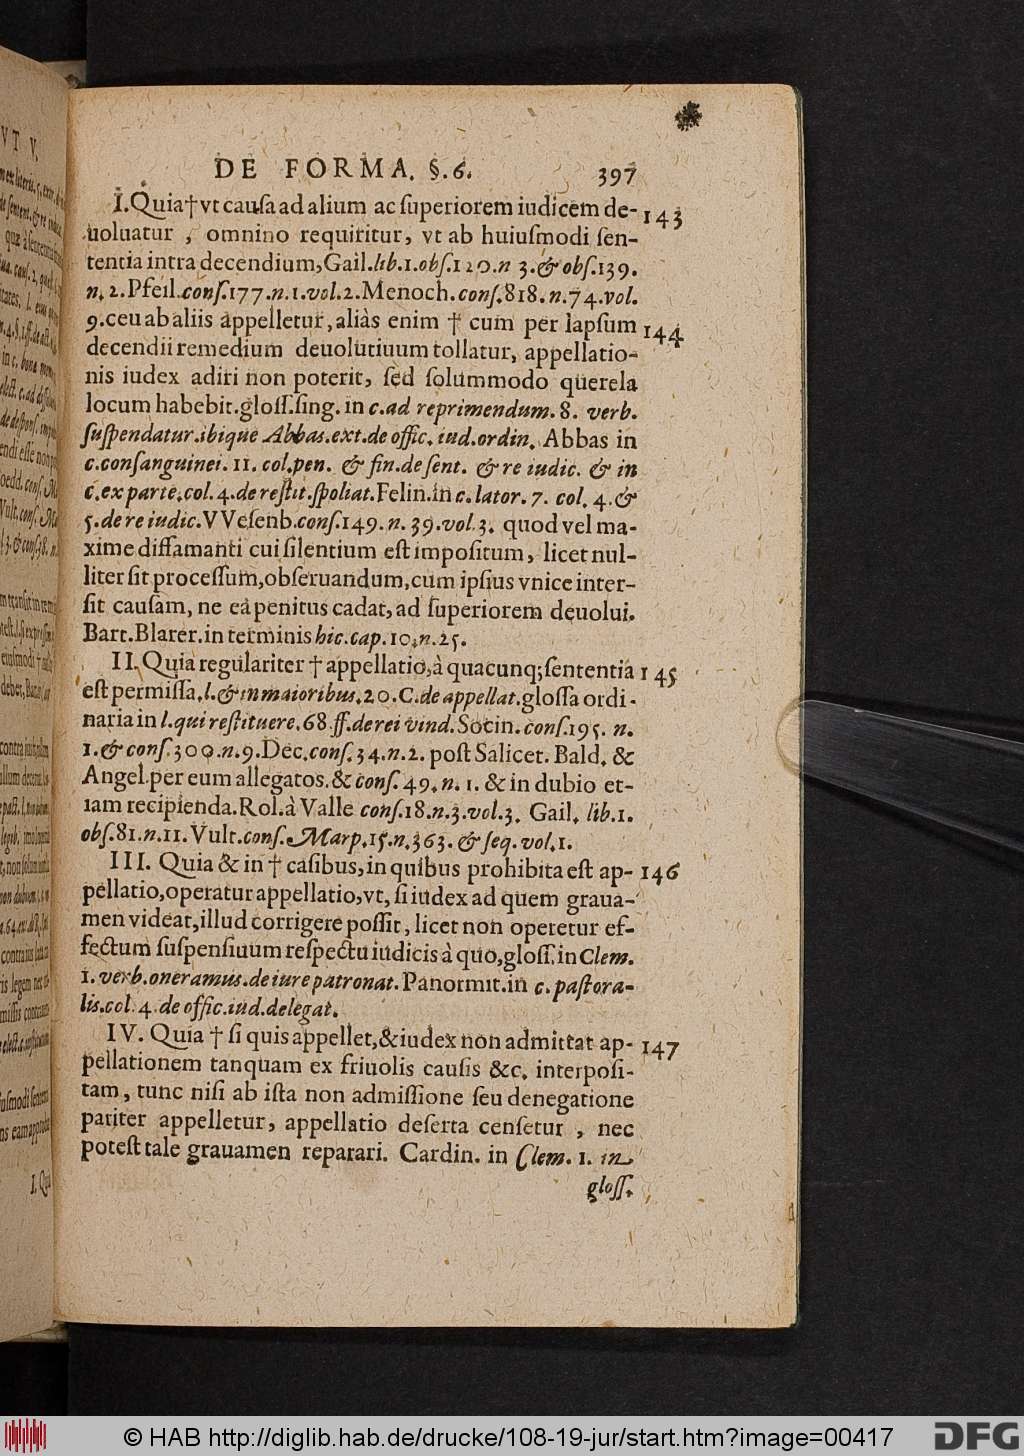 DE FORMA. §.6. 397
I. Quia † vt causa ad alium ac superiorem iudicem de- 143
uoluatur , omnino requiritur, vt ab huiusmodi sen-
tentia intra decendium, Gail. lib.1.obs.120.n 3.& obs.139.
n.2. Pfeil. cons.177.n.1.vol.2. Menoch. cons.818.n.74.vol.
9. ceu ab aliis appelletur, aliàs enim † cum per lapsum 144
decendii remedium deuolutiuum tollatur, appellatio-
nis iudex adiri non poterit, sed solummodo querela
locum habebit. gloss. sing. in c. ad reprimendum. 8. verb.
suspendatur. ibique Abbas. ext. de offic. iud. ordin. Abbas in
c. consanguinei. 11. col. pen. & fin. de sent. & re iudic. & in
c. ex parte. col. 4. de restit. spoliat. Felin. in c. lator. 7. col. 4. &
5. de re iudic. VVesenb. cons.149.n.39.vol.3. quod vel ma-
xime diffamanti cui silentium est impositum, licet nul-
liter sit processum, obseruandum, cum ipsius vnice inter-
sit causam, ne eâ penitus cadat, ad superiorem deuolui.
Bart. Blarer. in terminis hic. cap.10.n.25.
II. Quia regulariter † appellatio, à quacunq; sententia 145
est permissa. l. & in maioribus. 20. C. de appellat. glossa ordi-
naria in l. qui restituere. 68. ff. de rei vind. Socin. cons.195. n.
1. & cons.300.n.9. Dec. cons.34.n.2. post Salicet. Bald. &
Angel. per eum allegatos. & cons.49.n.1. & in dubio et-
iam recipienda. Rol. à Valle cons.18.n.3.vol.3. Gail. lib.1.
obs.81.n.11. Vult. cons. Marp.15.n.363. & seq. vol.1.
III. Quia & in † casibus, in quibus prohibita est ap- 146
pellatio, operatur appellatio, vt, si iudex ad quem graua-
men videat, illud corrigere possit, licet non operetur ef-
fectum suspensiuum respectu iudicis à quo, gloss. in Clem.
1. verb. oneramus. de iure patronat. Panormit. in c. pastora-
lis. col. 4. de offic. iud. delegat.
IV. Quia † si quis appellet, & iudex non admittat ap- 147
pellationem tanquam ex friuolis causis &c. interposi-
tam, tunc nisi ab ista non admissione seu denegatione
pariter appelletur, appellatio deserta censetur , nec
potest tale grauamen reparari. Cardin. in Clem. 1. in
gloss.
© HAB http://diglib.hab.de/drucke/108-19-jur/start.htm?image=00417
DFG